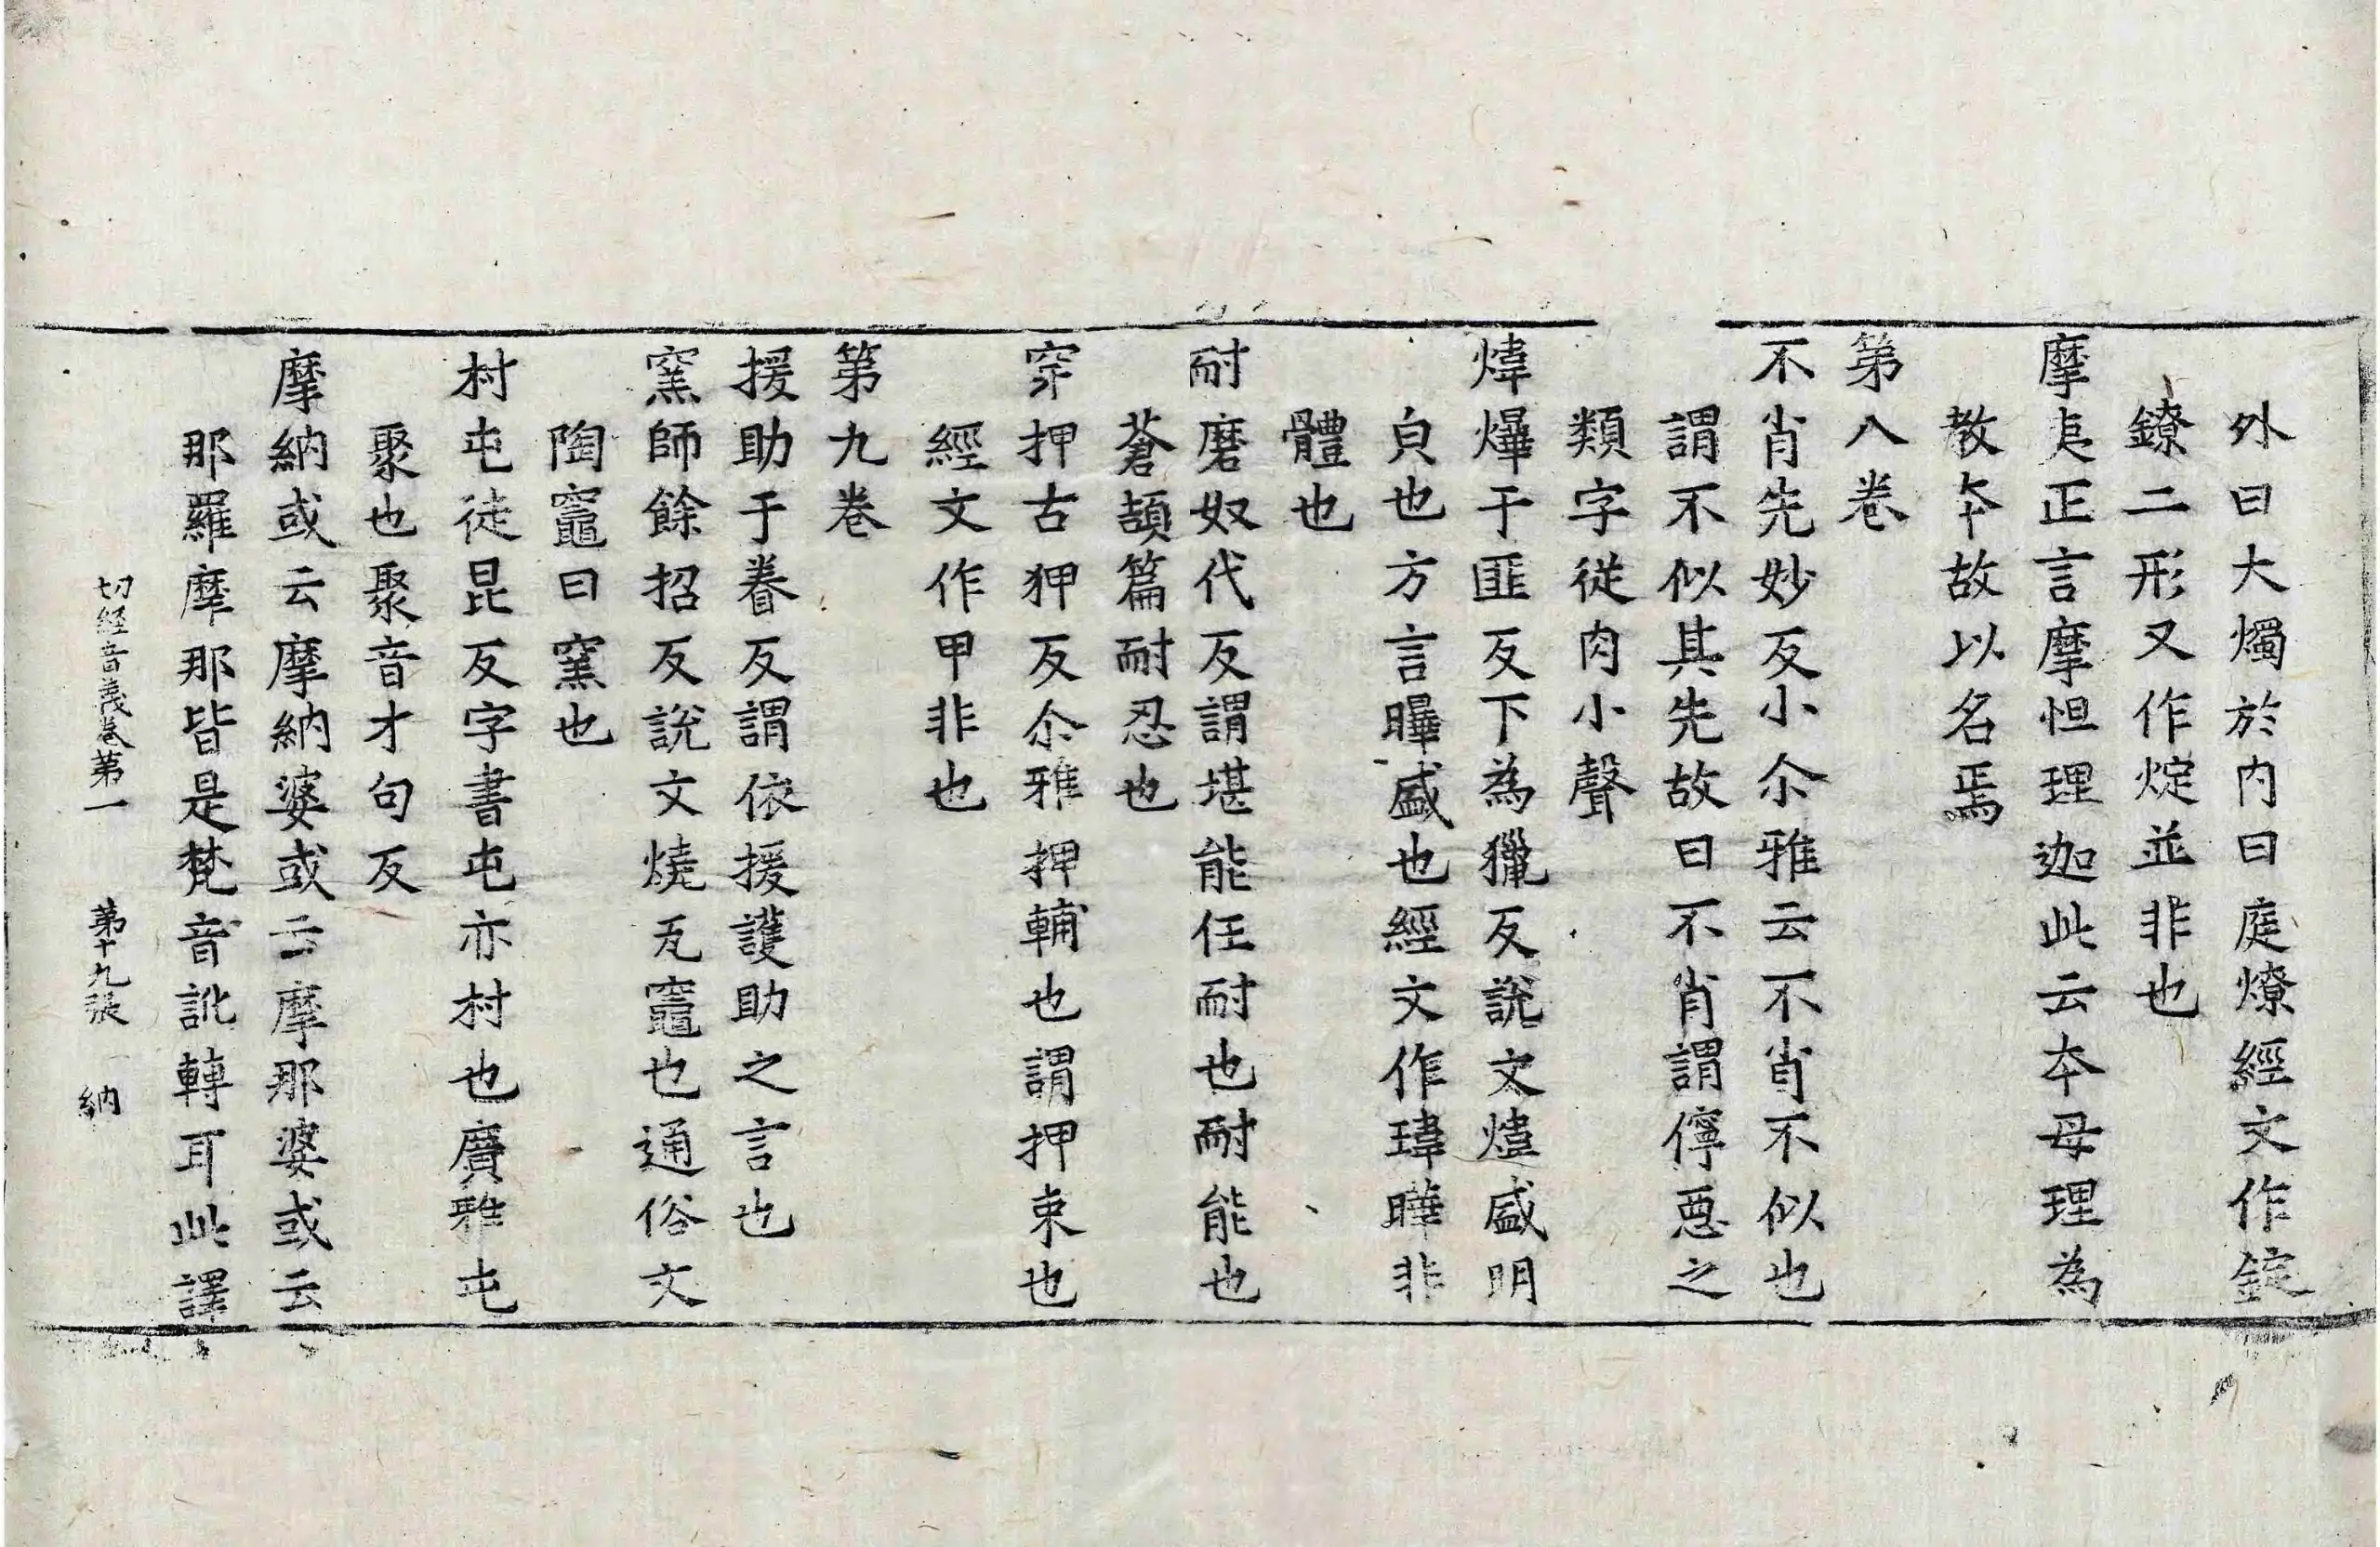 外曰大燭於內曰庭燎經文作錠
鐐二形又作烢並非也
摩夷正言摩怛理迦此云夲母理為
教夲故以名焉
第八卷
不肖先妙反小尒雅云不肖不似也
謂不似其先故曰不肖謂儜惡之
類字從肉小聲
煒爗于匪反下為獵反說文爗盛明
皃也方言曅盛也經文作瑋曄非
體也
耐磨奴代反謂堪能任耐也耐能也
蒼頡篇耐忍也
穿押古狎反尒雅押輔也謂押束也
經文作甲非也
第九卷
援助于眷反謂依援護助之言也
窯師餘招反說文燒瓦竈也通俗文
陶竈曰窯也
村屯徒昆反字書屯亦村也廣雅屯
聚也聚音才句反
摩納或云摩納婆或云摩那婆或云
那羅摩那皆是梵音訛轉耳此譯
切経音義卷第一　第十九張　納